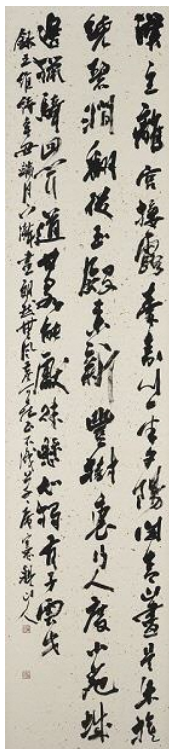 漢主離宮接露臺秦川一半夕陽開青山盡是朱旗
繞碧澗翻從玉殿來新豐樹裏行人度小苑城
邊獵騎回聞道甘泉能獻賦懸知獨有子雲才
錄王維詩辛丑端月